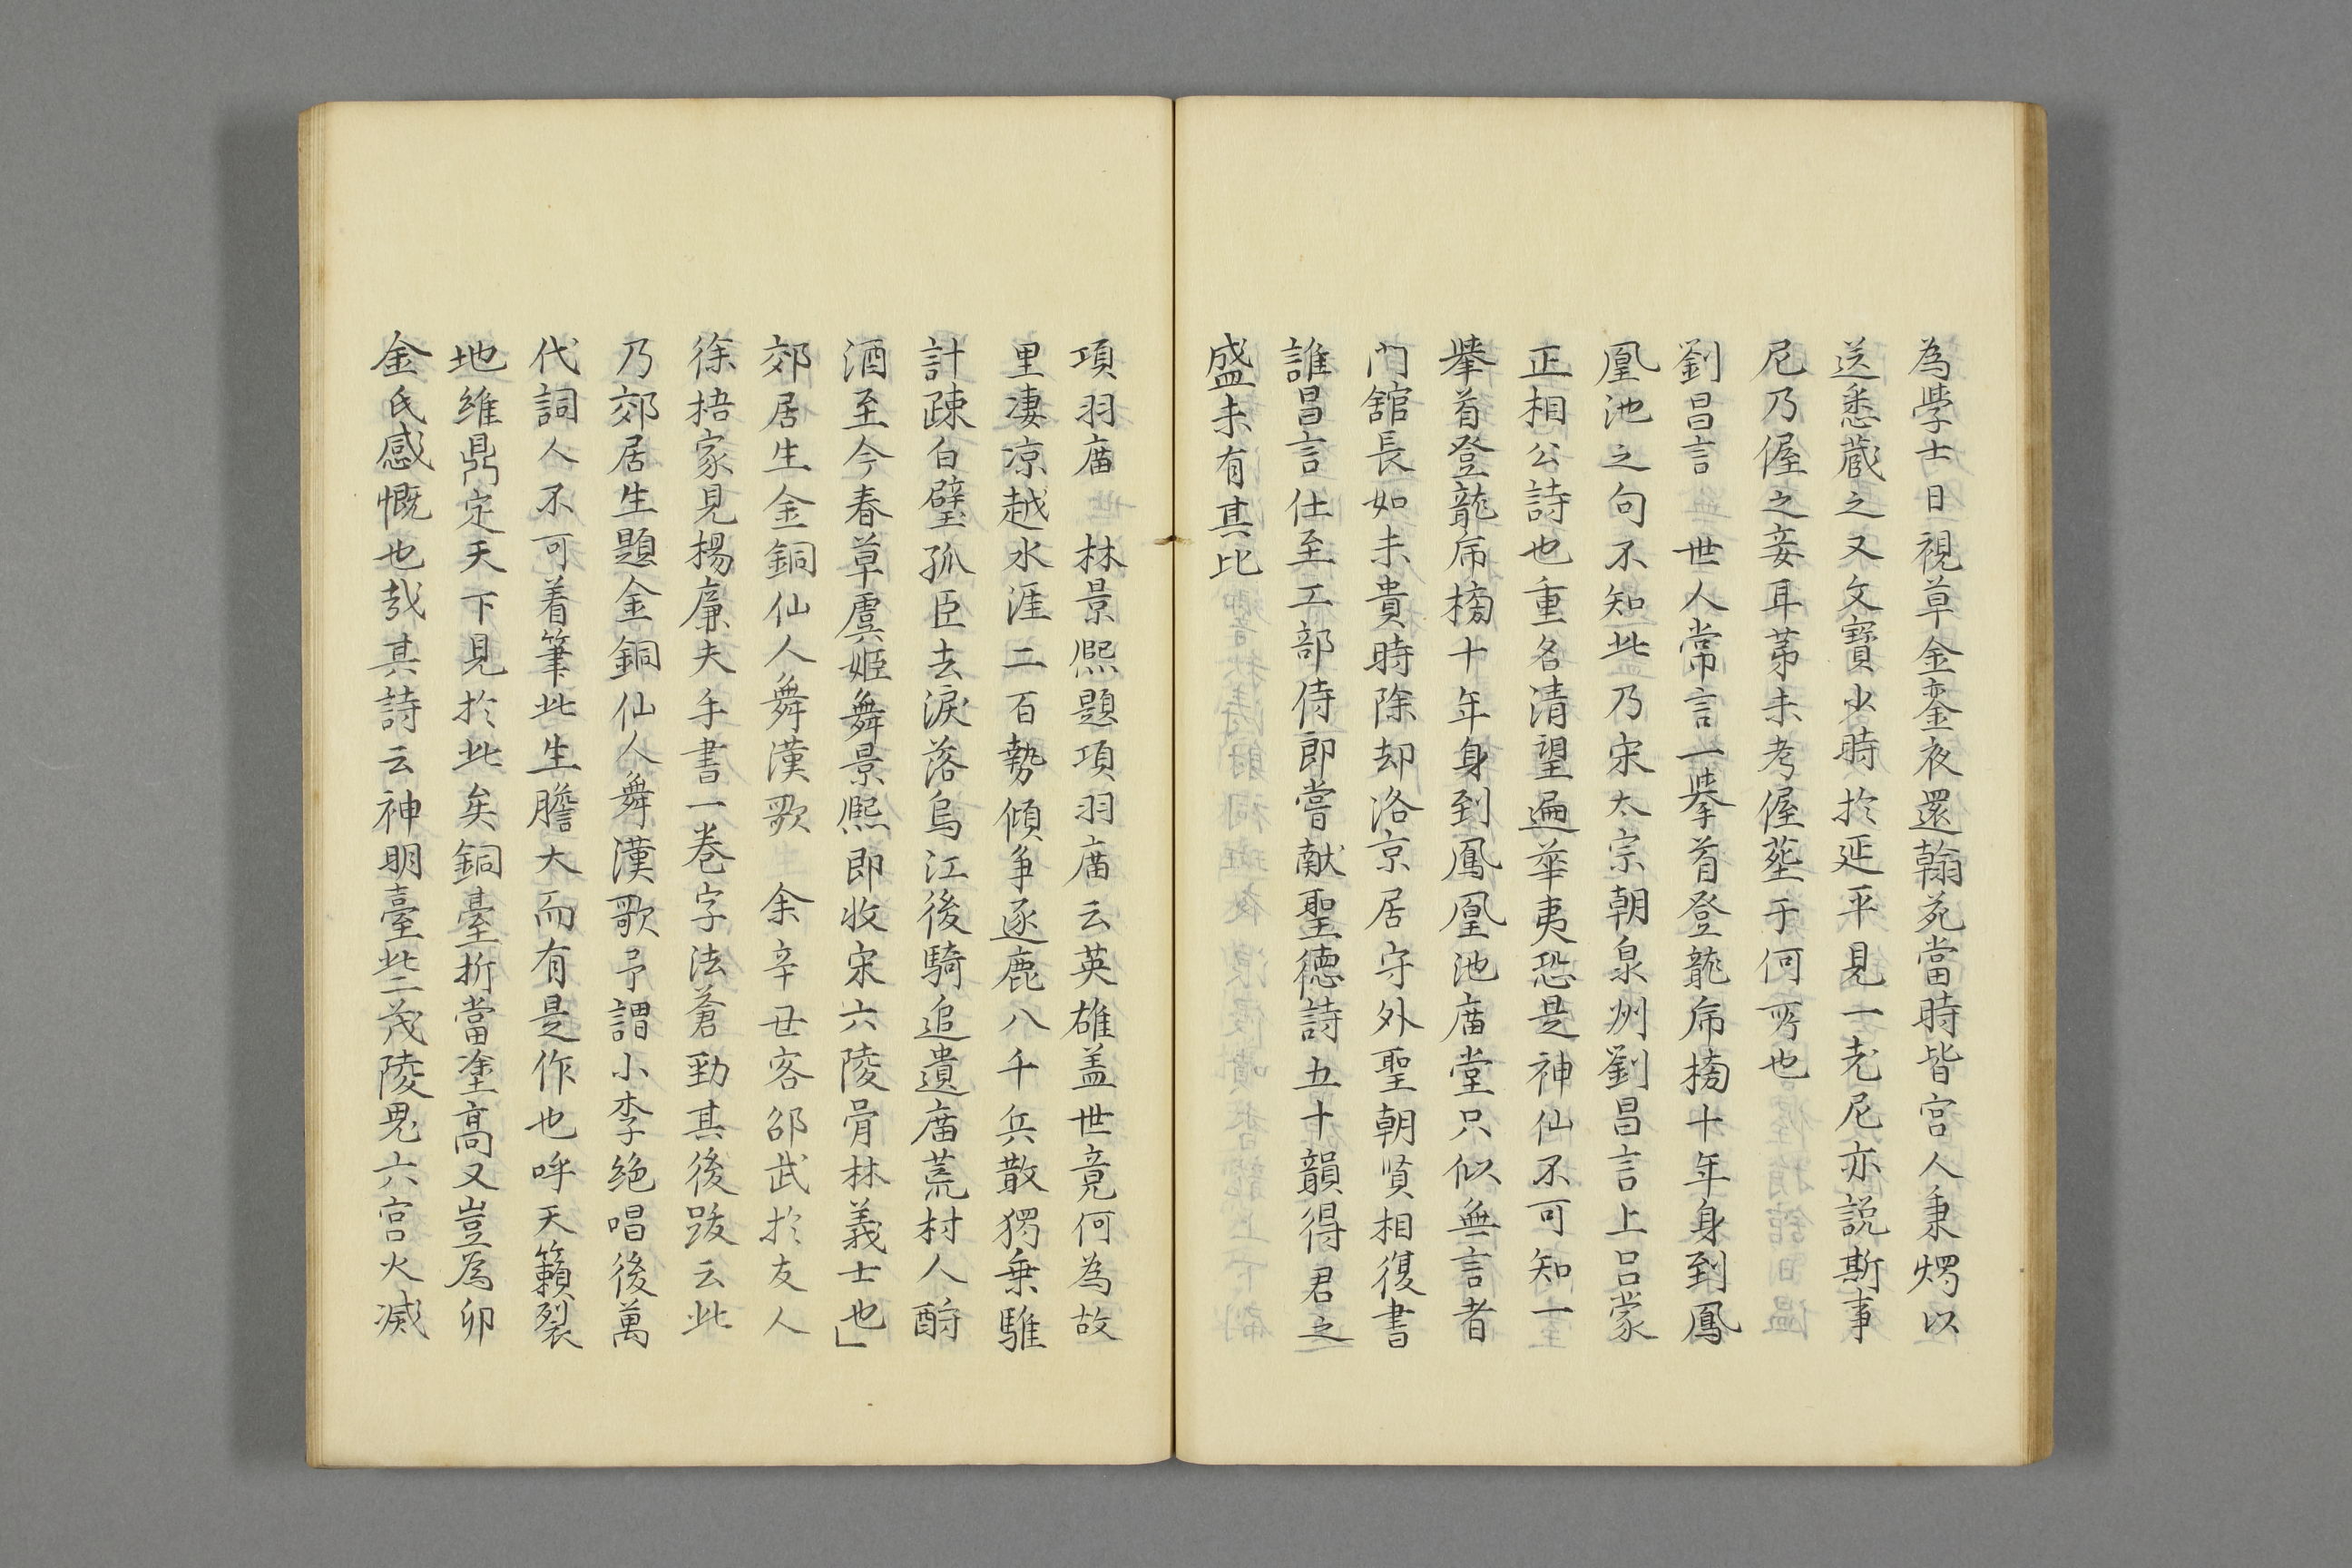 為學士日視草金鑾夜還翰苑當時皆宮人秉燭以
送悉蔵之又文寳少時於延平見一老尼亦説斯事
尼乃偓之妾耳苐未考偓塟于何所也
劉昌言 世人常言一擧首登龍虎榜十年身到鳳
凰池之句不知此乃宋太宗朝泉州劉昌言上呂蒙
正相公詩也重名清望遍華夷恐是神仙不可知一
擧首登龍虎榜十年身到鳳凰池廟堂只似無言者
門舘長如未貴時除却洛京居守外聖朝賢相復書
誰昌言仕至工部侍郎嘗献聖德詩五十韻得君之
盛未有其比
項羽廟 林景熈題項羽廟云英雄盖世竟何為故
里凄凉越水涯二百勢傾爭逐鹿八千兵散獨乗騅
計疎白璧孤臣去淚落烏江後騎追遺廟荒村人酹
酒至今春草虞姬舞景熈即收宋六陵骨林義士也
郊居生金銅仙人舞漢歌 余辛丑客邵武於友人
徐梧家見楊廉夫手書一卷字法蒼勁其後跋云此
乃郊居生題金銅仙人舞漢歌予謂小李絶唱後萬
代詞人不可着筆此生膽大而有是作也呼天籟裂
地維鼎定天下見於此矣銅臺折當塗高又豈為卯
金氏感慨也哉其詩云神明臺些二茂陵鬼六宮火滅